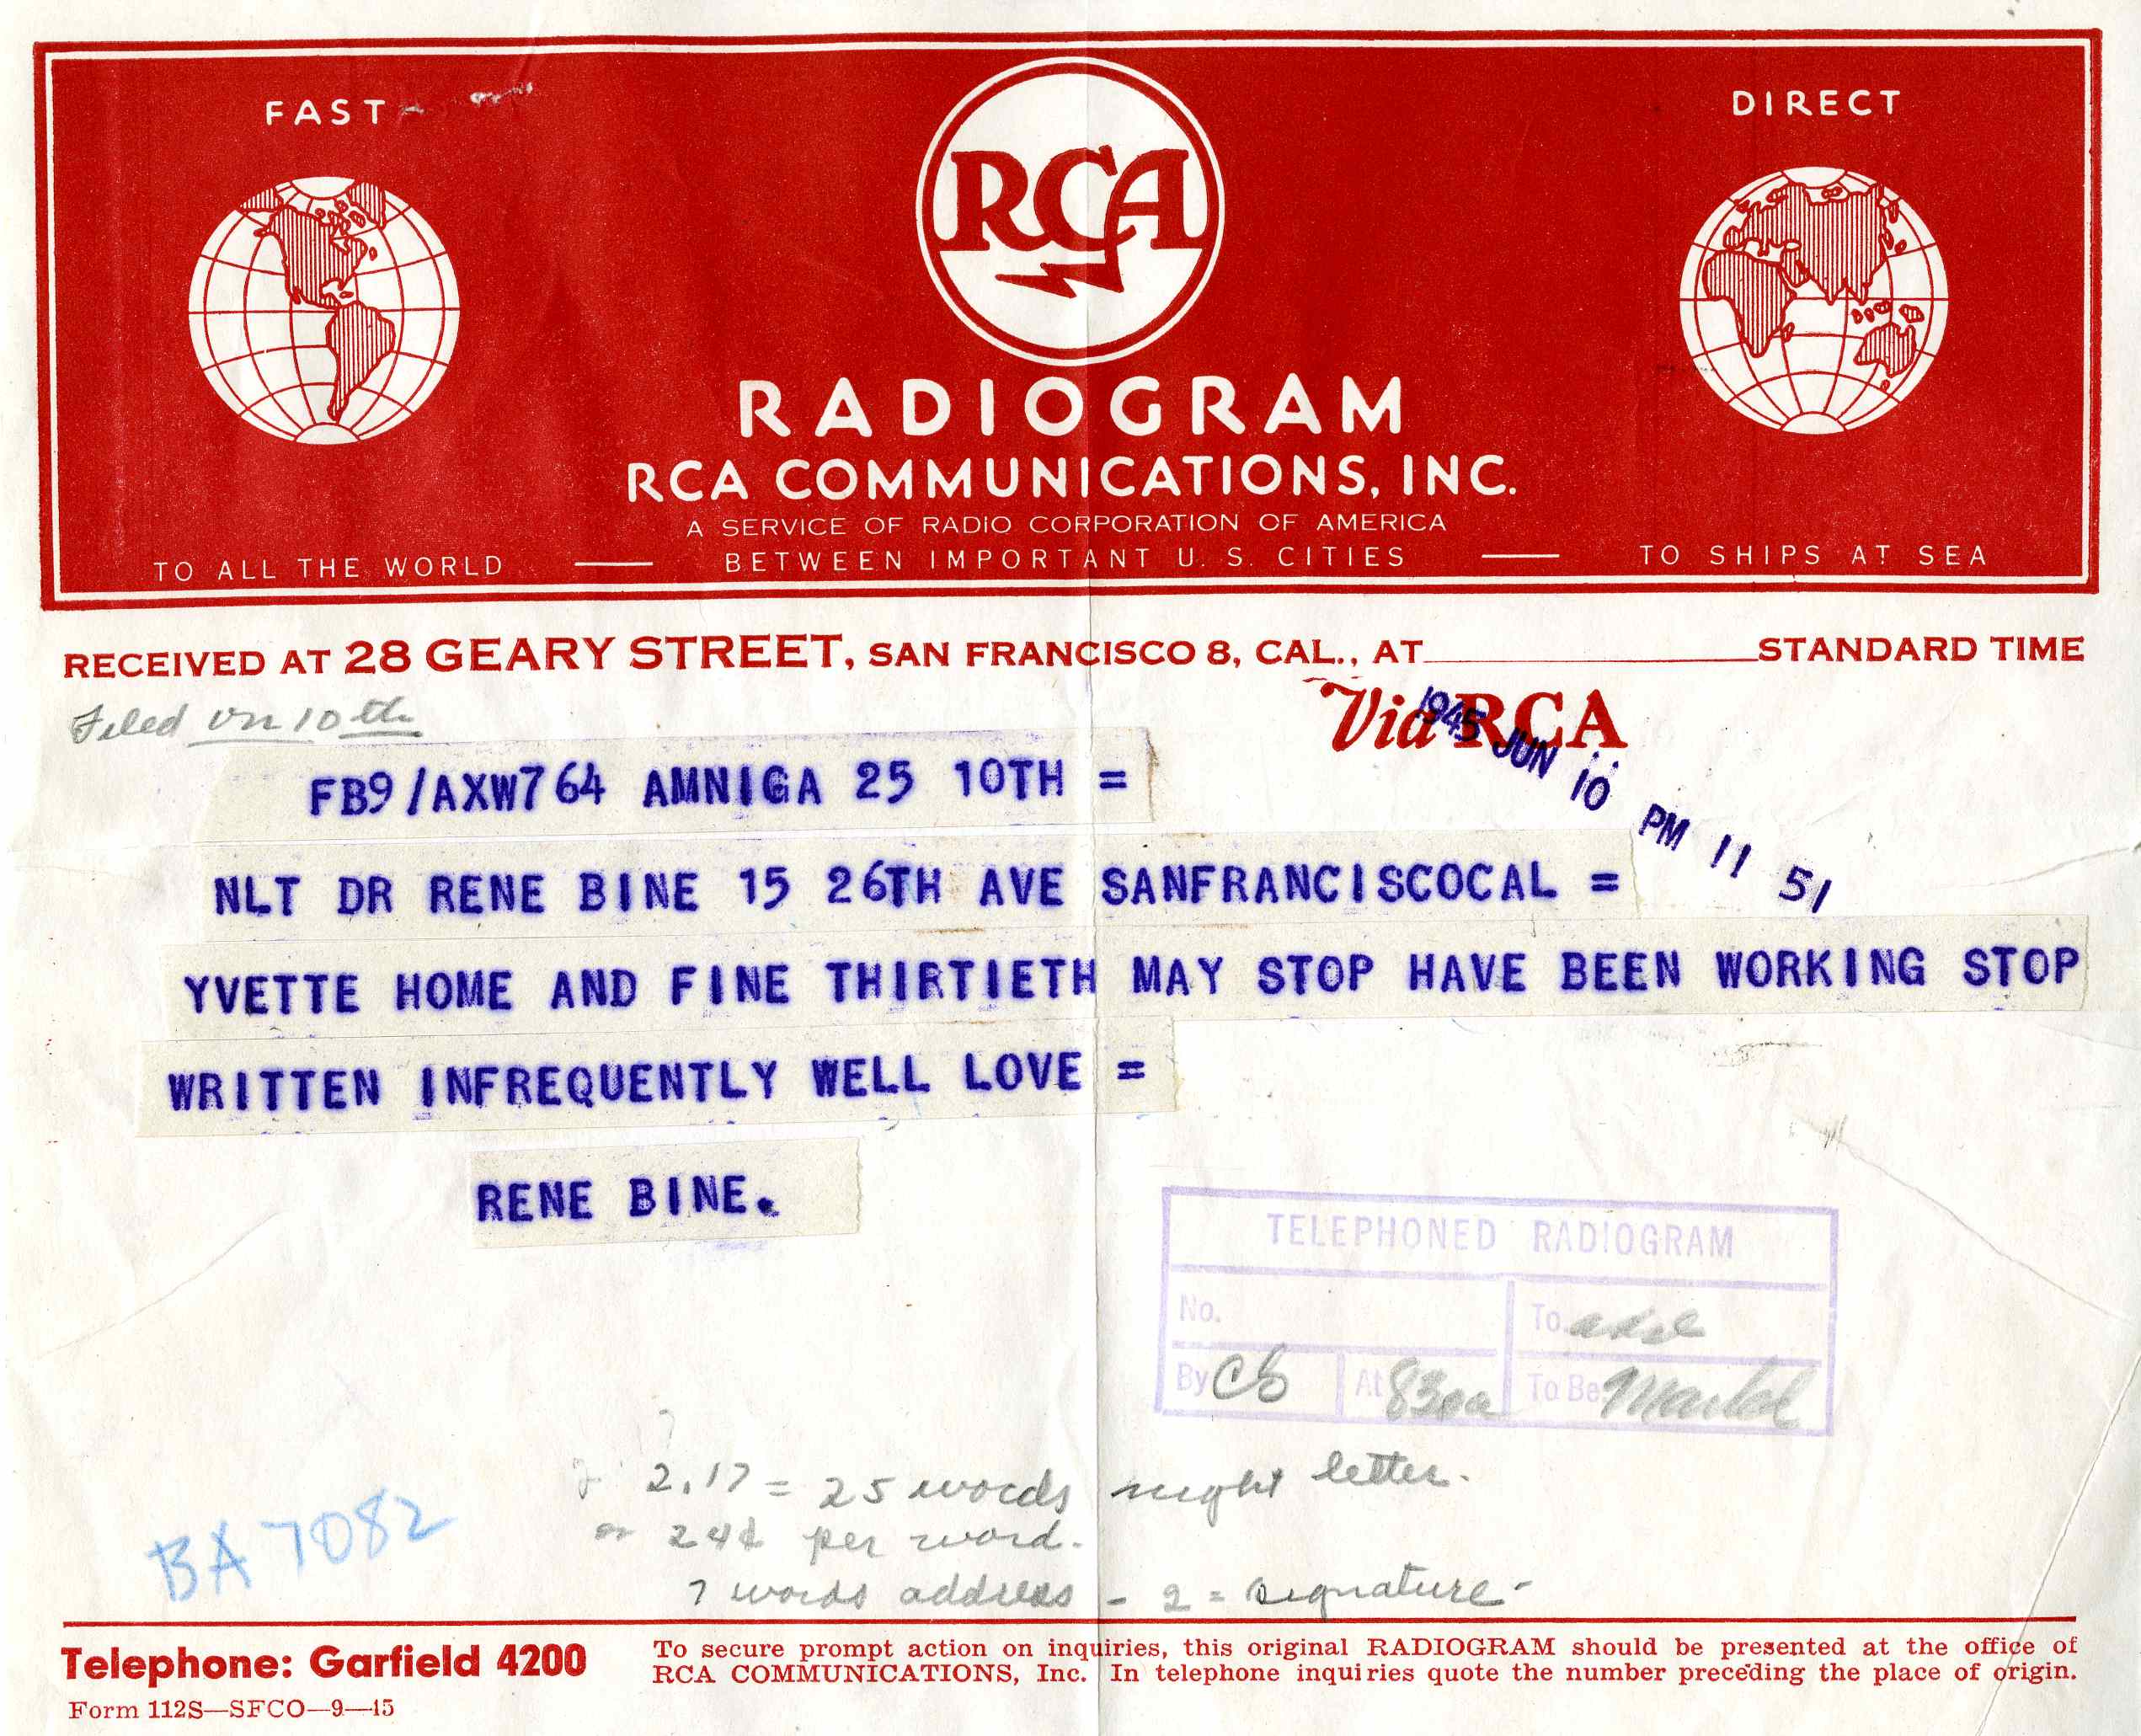 FAST
DIRECT
RCA
RADIOGRAM
RCA COMMUNICATIONS, INC.
A SERVICE OF RADIO CORPORATION OF AMERICA
TO ALL THE WORLD — BETWEEN IMPORTANT U. S. CITIES — TO SHIPS AT SEA
RECEIVED AT 28 GEARY STREET, SAN FRANCISCO 8, CAL., AT STANDARD TIME
Filed on 10th
Via RCA
1945 JUN 10 PM 11 51
FB9/AXW764 AMNIGA 25 10TH =
NLT DR RENE BINE 15 26TH AVE SANFRANCISCOCAL =
YVETTE HOME AND FINE THIRTIETH MAY STOP HAVE BEEN WORKING STOP
WRITTEN INFREQUENTLY WELL LOVE =
RENE BINE.
TELEPHONED RADIOGRAM
No. To
By CS At 830a To Be
2.17 = 25 words night letter.
or 24¢ per word.
7 words address - 2 = signature -
BA 7082
Telephone: Garfield 4200
To secure prompt action on inquiries, this original RADIOGRAM should be presented at the office of
RCA COMMUNICATIONS, Inc. In telephone inquiries quote the number preceding the place of origin.
Form 112S—SFCO—9—45